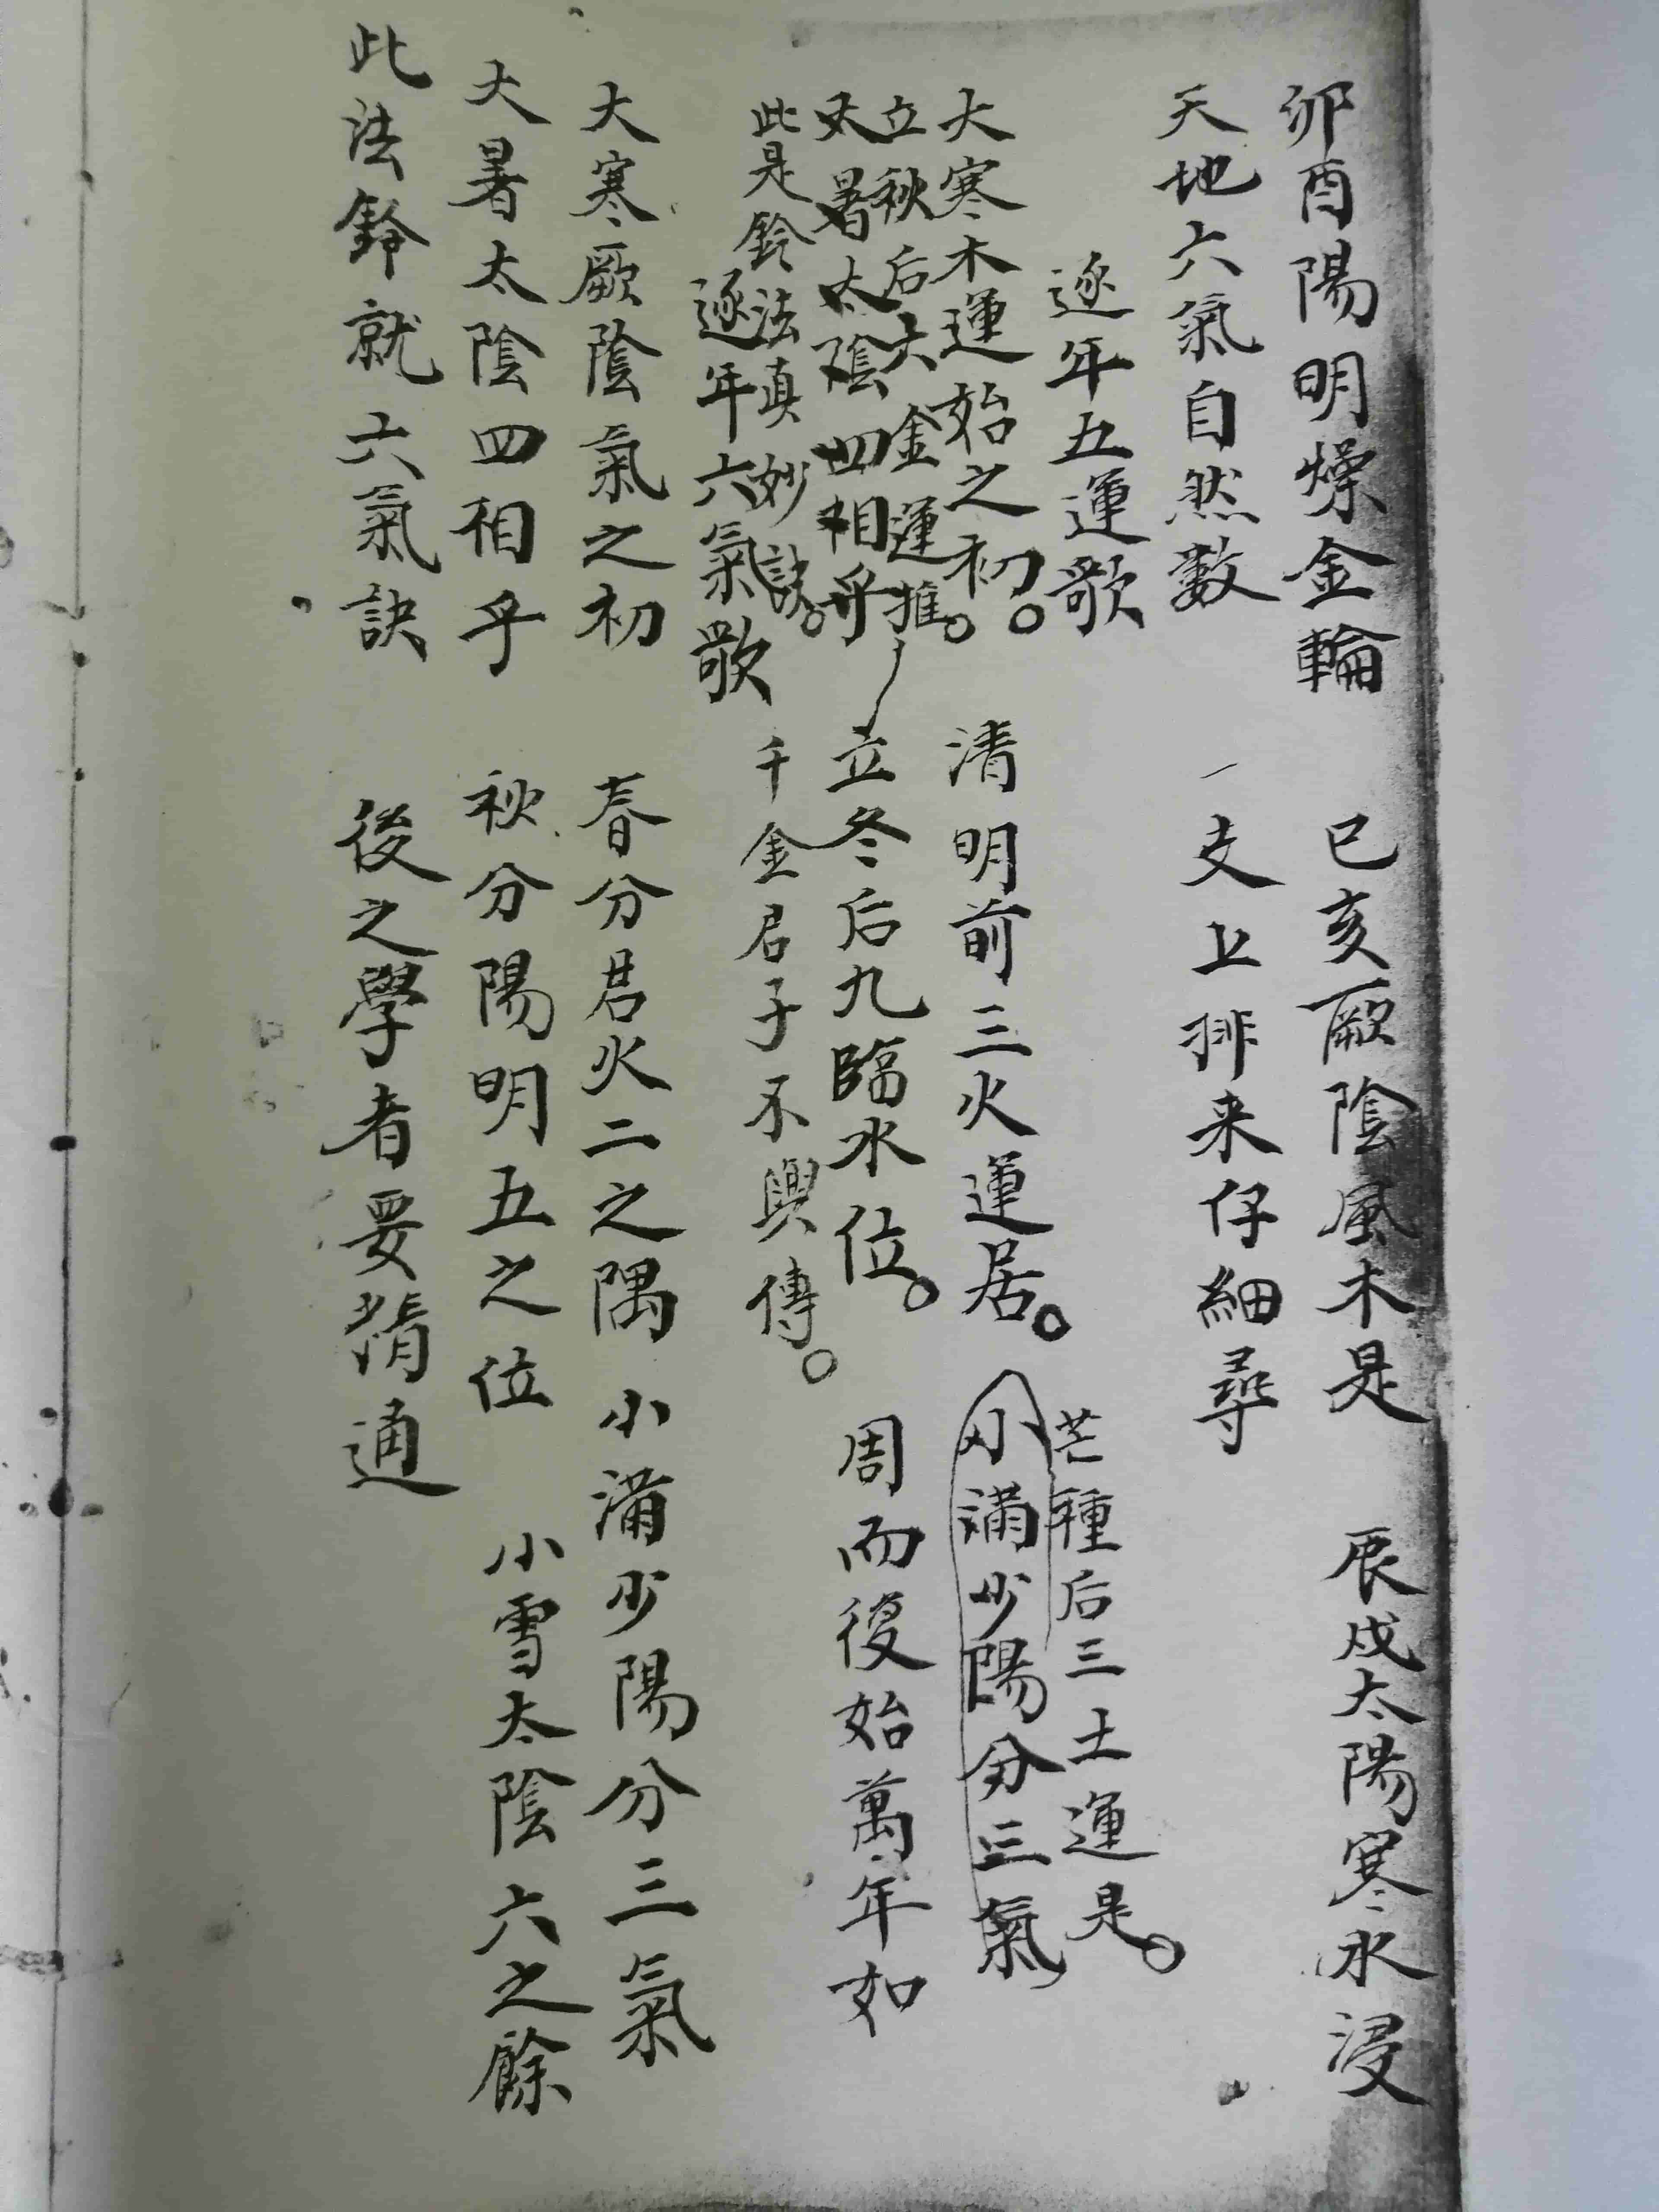 卯酉陽明燥金輪　巳亥厥陰風木是　辰戌太陽寒水浸
天地六氣自然數　一支上排来仔細尋
逐年五運歌
大寒木運始之初。清明前三火運居。芒種后三土運是。
小満少陽分三氣
立秋后六金運推。立冬后九臨水位。周而復始萬年如
大暑太陰四相乎
此是鈴法真妙訣。千金君子不興傳。
逐年六氣歌
大寒厥陰氣之初　春分君火二之隅　小滿少陽分三氣
大暑太陰四相乎　秋分陽明五之位　小雪太陰六之餘
此法鈴就六氣訣　後之學者要精通